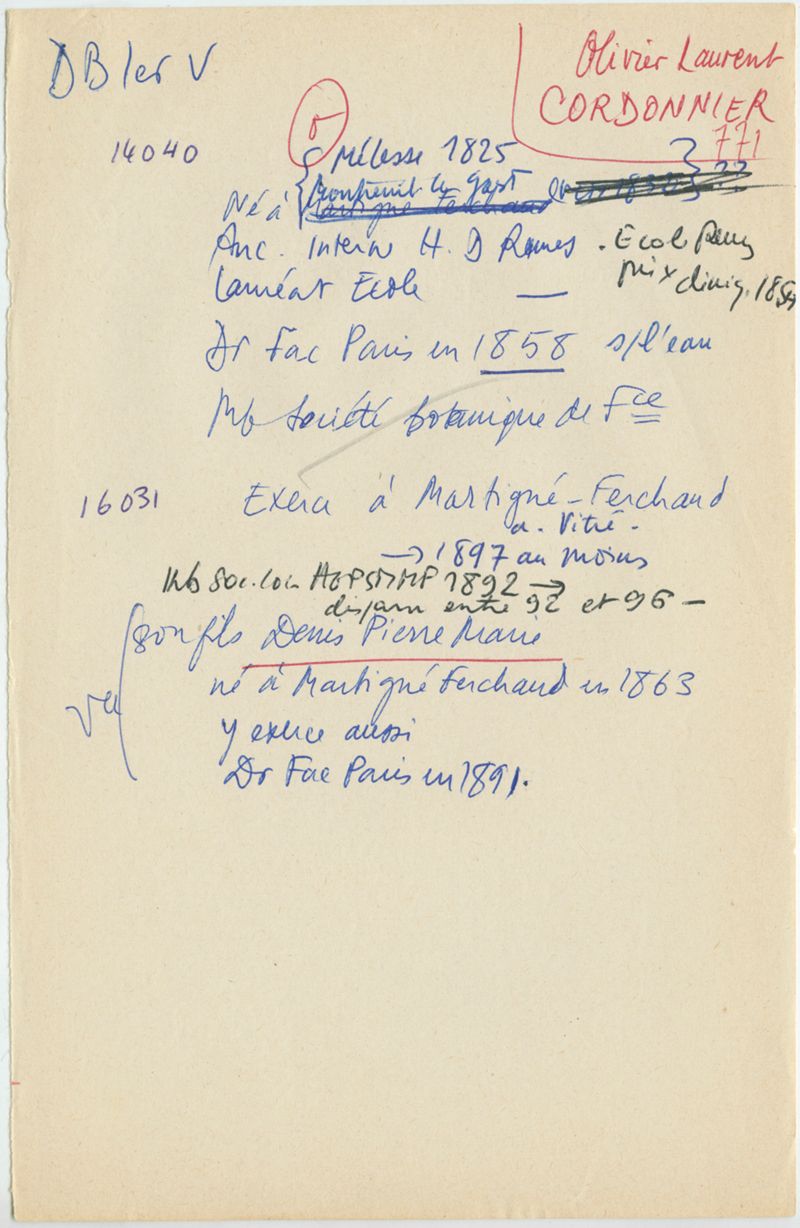 DB 1er V
Olivier Laurent
CORDONNIER
771
14040
Mélesse 1825
Montreuil le Gast
Né à Martigné Ferchaud en 1830 ??
Anc. Interne H. D Rennes . Ecole Rennes
prix cliniq. 185
Lauréat Ecole —
Dr Fac Paris en 1858 s/l'eau
Mb Société botanique de Fce
16031 Exerce à Martigné-Ferchaud
a. Vitré.
→ 1897 au moins
Mb Soc. loc. 1892 →
disparu entre 92 et 96 —
son fils Denis Pierre Marie
né à Martigné Ferchaud en 1863
vu
y exerce aussi
Dr Fac Paris en 1891.